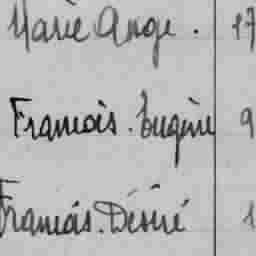 Marie Ange. 17
Francois. Eugène 9
Francois. Désiré 1